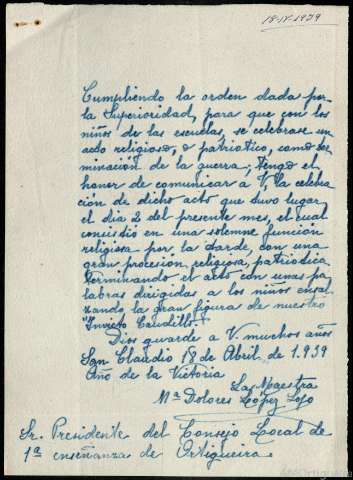 18-IV-1939
Cumpliendo la orden dada por
la Superioridad, para que con los
niños de las escuelas, se celebrase un
acto religioso, o patriotico, como ter-
minación de la guerra; tengo el
honor de comunicar a V, la celebra
ción de dicho acto que tuvo lugar
el dia 2 del presente mes, el cual
consistió en una solemne función
religiosa por la tarde, con una
gran procesion, religiosa, patriotica
terminando el acto con unas pa
labras dirigidas a los niños ensal
zando la gran figura de nuestro
"Invicto Caudillo"
Dios guarde a V. muchos años
San Claudio 18 de Abril, de 1.939
Año de la Victoria
La Maestra
Mª Dolores López Lojo
Sr. Presidente del Consejo Local de
1ª enseñanza de Ortigueira